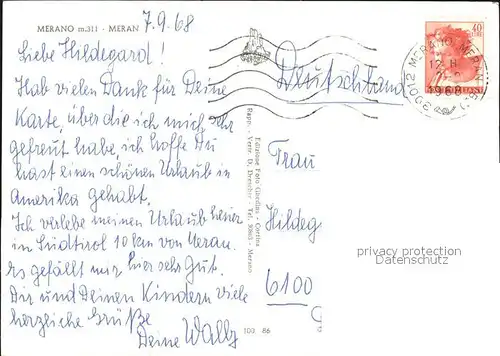 MERANO m.311 - MERAN
7.9.68
Liebe Hildegard!
Hab vielen Dank für Deine
Karte, über die ich mich sehr
gefreut habe, ich hoffe Du
hast einen schönen Urlaub in
Amerika gehabt.
Ich verlebe meinen Urlaub hier
in Südtirol 10 km von Meran.
Es gefällt mir hier sehr Gut.
Dir und Deinen Kindern viele
herzliche Grüße
Deine Wally
Edizione Foto Ghedina - Cortina
Rapp. - Vertr. D. Drescher - Tel. Merano
100 86
40
LIRE
39012 MERANO - MERAN
12 - H
1968
Deutschland
Frau
Hildeg
6100
privacy protection
Datenschutz